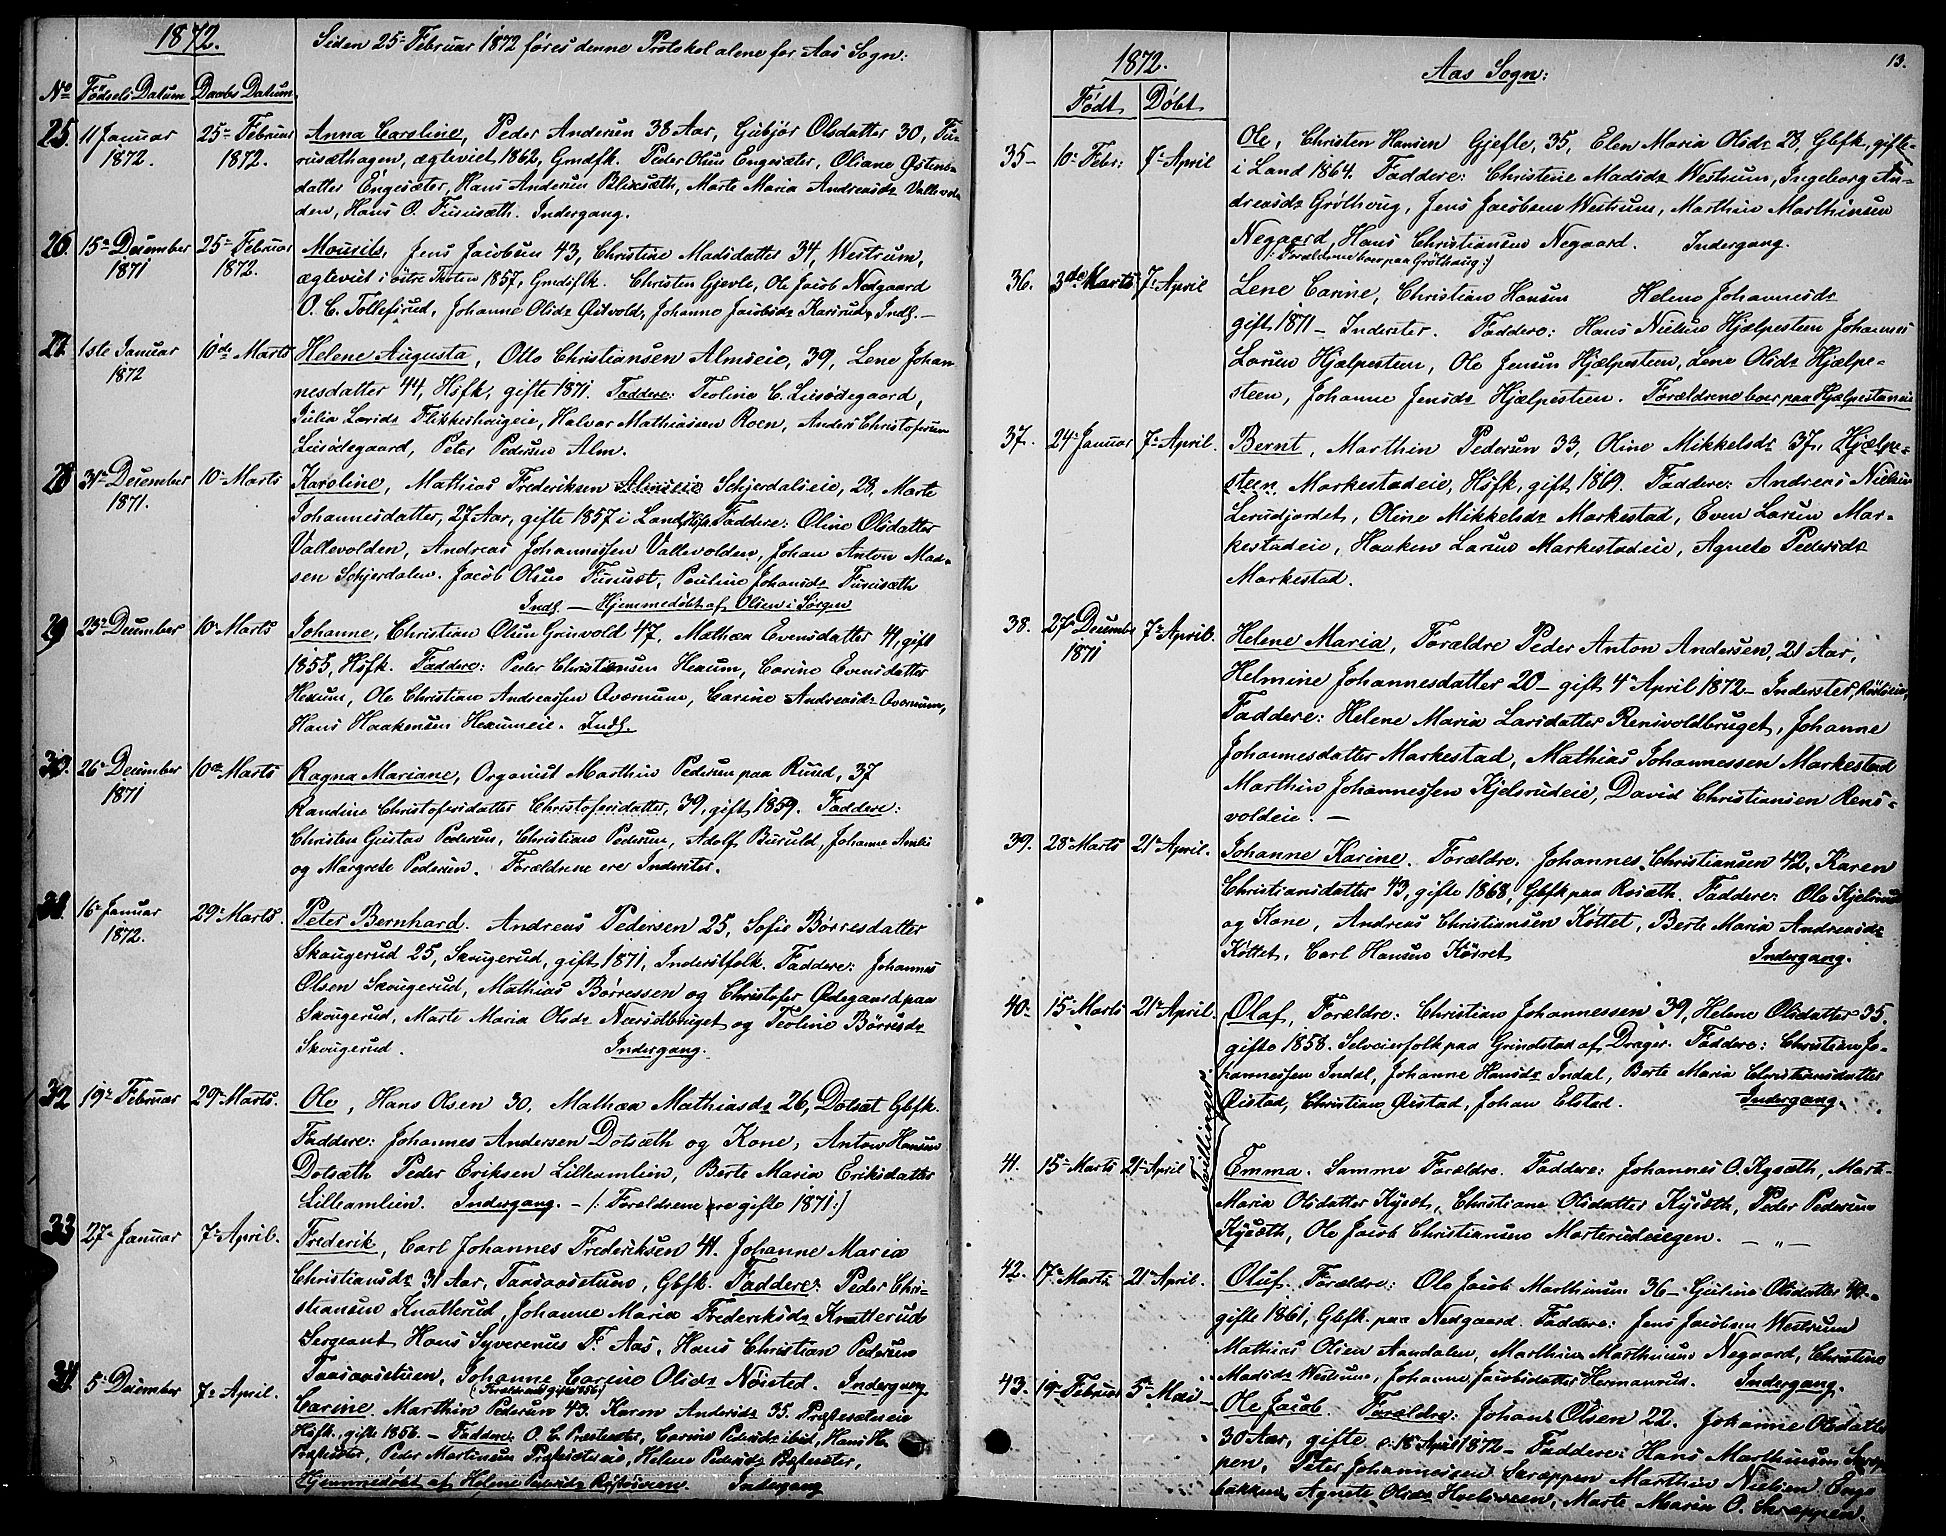 1872.
Siden 25 Februar 1872 føres denne Protokol alene for Aas Sogn:
No Fødsels Datum Daabs Datum
25. 11 Januar 1872. 25 Februar 1872.
Anna Caroline, Peder Andersen 38 Aar, Gubjør Olsdatter 30, Fu-
rusæthagen, ægteviet 1862, Gmdfk. Peder Olsen Engesæter, Oliane Østens-
datter Engesæter, Hans Andersen Blixsæth, Marte Maria Andreasdr Vallevol-
den, Hans O. Furusæth. Indergang.
26. 15 December 1871 25 Februar 1872.
Mourits, Jens Jacobsen 43, Christine Madsdatter 34, Westrum,
ægteviet i östre Thoten 1857, Gmdsfk. Christen Gjevle, Ole Jacob Nedgaard
O. C. Tollefsrud, Johanne Olsdr Østvold, Johanne Jacobsdr Karirud, Indg.
27. 1ste Januar 1872 10de Marts
Helene Augusta, Otto Christiansen Almseie, 39, Lene Johan
nesdatter 44, Hsfk, gifte 1871. Faddere: Teoline C. Lisødegaard,
Julia Larsdr Flikkeshaugeie, Halvor Mathiassen Roen, Anders Christofersen
Lisødegaard, Peter Pedersen Alm.
28 31 December 1871. 10 Marts
Karoline, Mathias Frederiksen Almseie Schjerdalseie, 28, Marte
Johannesdatter, 27 Aar, gifte 1857 i Land, Hsfk. Faddere: Oline Olsdatter
Vallevolden, Andreas Johannessen Vallevolden, Johan Anton Mad-
sen Schjerdalen. Jacob Olsen Furusæt, Pauline Johansdr Furusæth
Indg. — Hjemmedøbt af Olsen i Sørgen
29 23 December 10 Marts
Johanne, Christian Olsen Grinvold 47, Mathea Evensdatter 41, gift
1855, Hsfk. Faddere: Peder Christiansen Hexum, Carine Evensdatter
Hexum, Ole Christian Andreassen Overnum, Carine Andreasdr Overnum,
Hans Haakensen Hexumeie. Indg.
30. 26 December 1871 10de Marts
Ragna Mariane, Organist Marthin Pedersen paa Ruud, 37
Randine Christofersdatter Christofersdatter, 39, gift 1859. Faddere:
Christen Gustav Pedersen, Christiane Pedersen, Adolf Buruld, Johanne Amlie
og Margrete Pedersen. Forældrene ere Inderster.
31. 16 Januar 1872. 29 Marts.
Peter Bernhard. Andreas Pedersen 25, Sofie Børresdatter
Skougerud 25, Skougerud, gift 1871, Inderstfolk. Faddere: Johannes
Olsen Skougerud, Mathias Børressen og Christofer Ødegaard paa
Skougerud, Marte Maria Olsdr Næsselbruget og Teoline Børresdr
Skougerud. Indergang.
32 19 Februar 29 Marts.
Ole, Hans Olsen 30, Mathea Mathiasdr 26, Dotsæt Gbfk.
Faddere: Johannes Andersen Dotsæth og Kone, Anton Hansen
Dotsæth Peder Eriksen Lilleamlien, Berte Maria Eriksdatter
Lilleamlien. Indergang. — /: Forældrene ere gifte 1871 :/
33 27 Januar 7 April.
Frederik, Carl Johannes Frederiksen 41. Johanne Maria
Christiansdr 31 Aar, Taasaasetuen, Gbfk. Faddere: Peder Chri-
stiansen Knatterud, Johanne Maria Frederiksdr Knatterud
Sergeant Hans Syverenus F. Aas, Hans Christian Pedersen
Taasaasetuen, Johanne Carine Olsdr Nøisted. Indergang
34. 5 December 7 April.
Carine. Marthin Pedersen 43. Karen Andersdr 35. Præstesætereie
Hsfk., gifte 1856. — Faddere O. C. Præstesæter, Carine Pedersdr ibid., Hans H.
Præstesæter, Peder Martinsen Præstesætereie, Helene Pedersdr Præstesæter,
Hjemmedøbt af Helene Pedersdr. Indergang
13.
1872. Aas Sogn:
Født Døbt
35 — 10 Febr: 7 April
Ole, Christen Hansen Gjefle, 35, Elen Maria Olsdr 28, Gbfk, gifte
i Land 1864. Faddere: Christine Madsdr Westrum, Ingeborg An-
dreasdr Grøthoug, Jens Jacobsen Westrum, Marthin Marthinsen
Negaard, Hans Christiansen Negaard. Indergang.
/: Forældrene boer paa Grøthaug :/
36. 3de Marts 7 April
Lene Carine, Christian Hansen Helene Johannesdr
gift 1871 — Inderster. Faddere: Hans Nielsen Hjælpesteen Johannes
Larsen Hjælpesteen, Ole Jensen Hjælpesteen, Lene Olsdr Hjælpe-
steen, Johanne Jensdr Hjælpesteen. Forældrene boer paa Hjælpesteneie
37. 24 Januar 7 April.
Bernt, Marthin Pedersen 33, Oline Mikkelsdr 37, Hjælpe-
steen, Markestadeie, Hsfk, gift 1869. Faddere: Andreas Nielsen
Lerudjordet, Oline Mikkelsdr Markestad, Even Larsen Mar-
kestadeie, Haaken Larsen Markestadeie, Agnete Pedersdr
Markestad.
38. 27 December 1871 7 April.
Helene Maria, Forældre Peder Anton Andersen, 21 Aar,
Helmine Johannesdatter 20 — gift 4 April 1872 — Inderster,
Faddere: Helene Maria Larsdatter Rensvoldbruget, Johanne
Johannesdatter Markestad, Mathias Johannessen Markestad
Marthin Johannessen Kjelsrudeie, David Christiansen Rens-
voldeie. —
39. 28 Marts 21 April.
Johanne Karine. Forældre. Johannes Christiansen 42, Karen
Christiansdatter 43, gifte 1868, Gbfk paa Rosæth. Faddere: Ole Kjelsrud
og Kone, Andreas Christiansen Köttet, Berte Maria Andreasdr
Köttet, Carl Hansen Kösvet Indergang.
40. 15 Marts 21 April.
Tvillinger.
Olaf, Forældre: Christian Johannessen 39, Helene Olsdatter 35.
gifte 1858. Selveierfolk paa Grindstad af Drager. Faddere: Christian Jo-
hannessen Indal, Johanne Hansdr Indal, Berte Maria Christiansdatter
Øistad, Christian Øistad, Johan Elstad. Indergang.
41. 15 Marts 21 April
Emma. Samme Forældre. Faddere: Johannes O. Kysæth, Marte
Maria Olsdatter Kysæt, Christiane Olsdatter Kysæth, Peder Pedersen
Kysæth, Ole Jacob Christiansen Marterudeiegen. — „ —
42. 17 Marts 21 April.
Oluf. Forældre: Ole Jacob Marthinsen 36 — Gjuline Olsdatter 40.
gifte 1861, Gbfk. paa Nedgaard. Faddere: Jens Jacobsen Westrum
Mathias Olsen Aandalen, Marthin Marthinsen Negaard, Christine
Madsdr Westrum, Johanne Jacobsdatter Hermanrud. Indergang.
43. 19 Februar 5 Mai —
Ole Jacob. Forældre: Johan Olsen 22. Johanne Olsdatter
30 Aar, gifte 18 April 1872 — Faddere: Hans Marthinsen Scræp-
pen, Peter Johannessen Scræppen Marthin Nielsen Enge
bakken, Agnete Olsdr Hvelsveen, Marte Maria O. Scræppen.